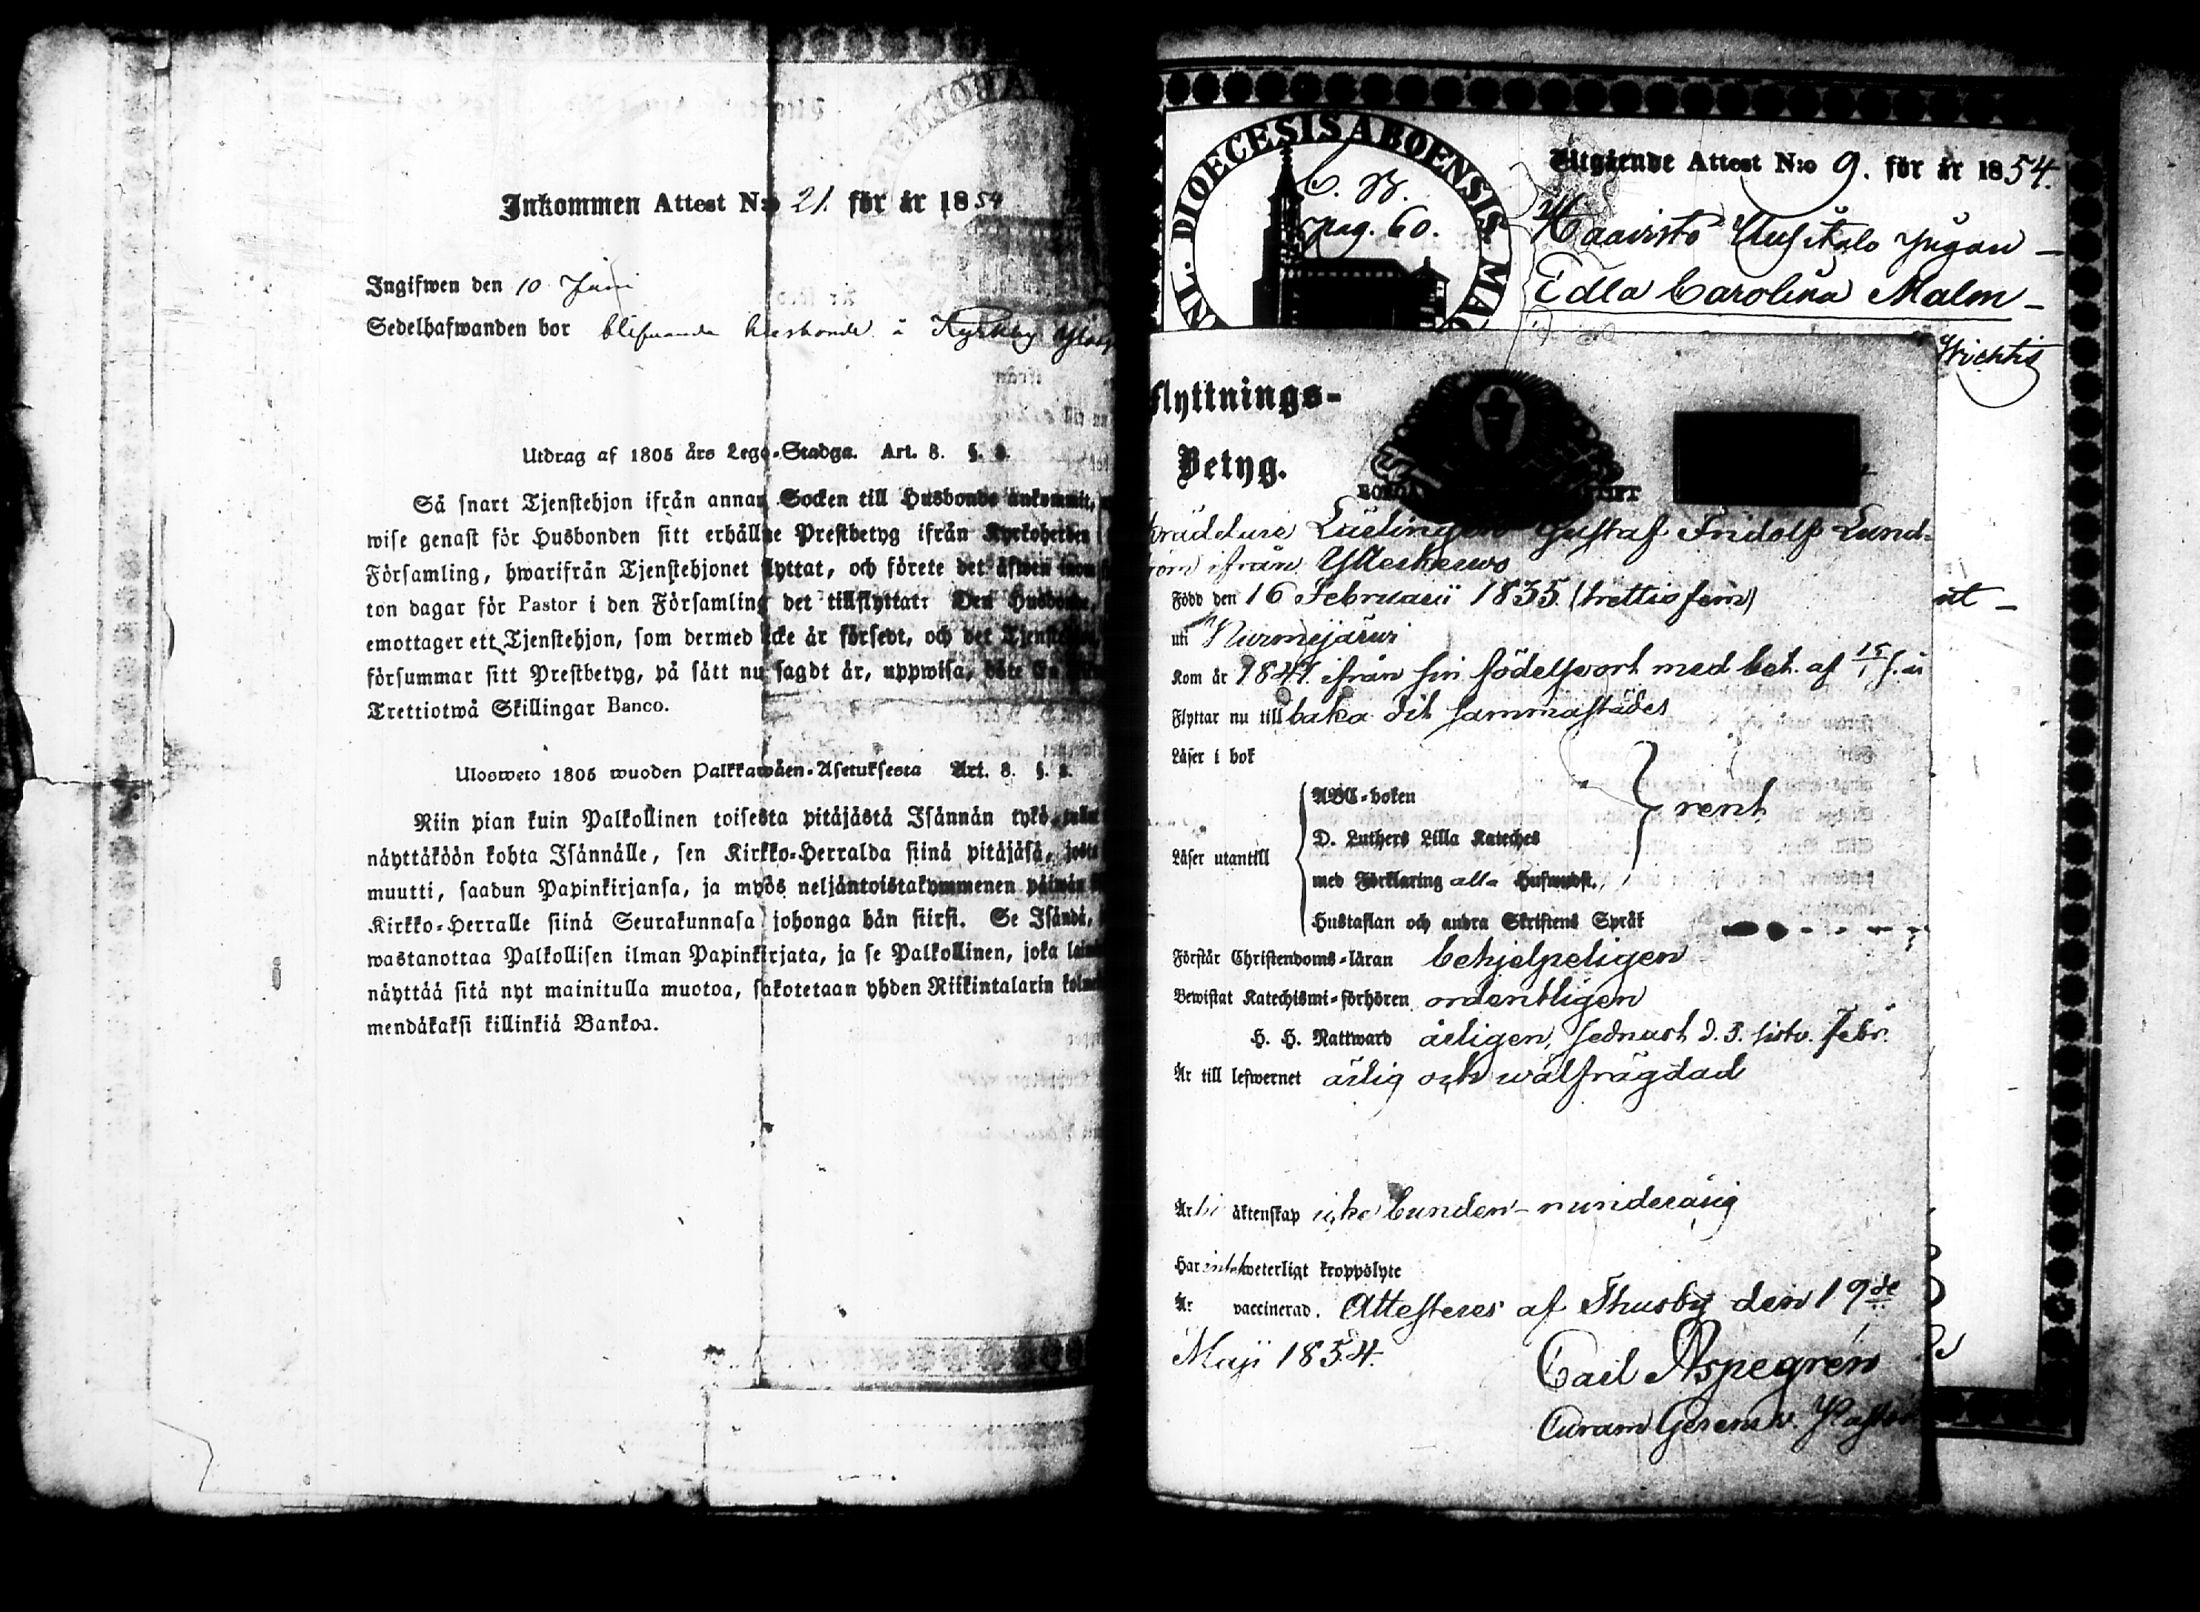 Inkommen Attest N:o 21. för år 1854
Ingifwen den 10 Juni
Sedelhafwanden bor blifwande å Kyrkby
Utdrag af 1805 års Lego-Stadga. Art. 8. §. 2.
Så snart Tjenstehjon ifrån annan Socken till Husbonde ankommit,
wise genast för Husbonden sitt erhållne Prestbetyg ifrån Kyrkoherden
Församling, hwarifrån Tjenstehjonet flyttat, och förete det äfwen inom
ton dagar för Pastor i den Församling det tillflyttat: Den Husbonde,
emottager ett Tjenstehjon, som dermed icke är försedt, och det Tjenstehjon,
försummar sitt Prestbetyg, på sätt nu sagdt är, uppwisa, böte En
Trettiotwå Skillingar Banco.
Ulosweto 1805 wuoden Palkkawäen-Asetuksesta Art. 8. §. 2.
Niin pian kuin Palkollinen toisesta pitäjästä Isännän tykö
näyttäköön kohta Isännälle, sen Kirkko-Herralda siinä pitäjäsä, josta
muutti, saadun Papinkirjansa, ja myös neljäntoistakymmenen päiwän
Kirkko-Herralle siinä Seurakunnasa johonga hän siirsi. Se Isändä,
wastanottaa Palkollisen ilman Papinkirjata, ja se Palkollinen, joka
näyttää sitä nyt mainitulla muotoa, sakotetaan yhden Riikintalarin
mendäkaksi killinkiä Bankoa.
DIOECESIS ABOENSIS. MAG
C. B.
pag. 60.
Utgående Attest N:o 9. för år 1854.
Haavisto Uusitalo pigan –
Edla Carolina Malm –
Wichtis
Flyttnings-
Betyg.
Gustaf Fridolf Lund-
ifrån
Född den 16 Februarii 1835 (trettiofem)
uti Nurmejärwi
Kom år 1847 ifrån sin födelseort med bet. af 15/1 s. å
Flyttar nu tillbaka dit sammastädes
Läser i bok
ABC-boken
D. Luthers Lilla Kateches
rent
Läser utantill
med Förklaring alla Hufwudst.
Hustaflan och andra Skriftens Språk
Förstår Christendoms-läran behjelpeligen
Bewistat Katechismi-förhören ordentligen
H. H. Nattward årligen, sednast d. 3. sistv. Febr.
Är till lefwernet ärlig och wälfrägdad
Är i äktenskap icke bunden – minderårig
Har intet weterligt kroppslyte
Är vaccinerad. Attesteres af Thusby den 19de
Maji 1854.
Carl Aspegrén
Curam Gerens v. Pastor